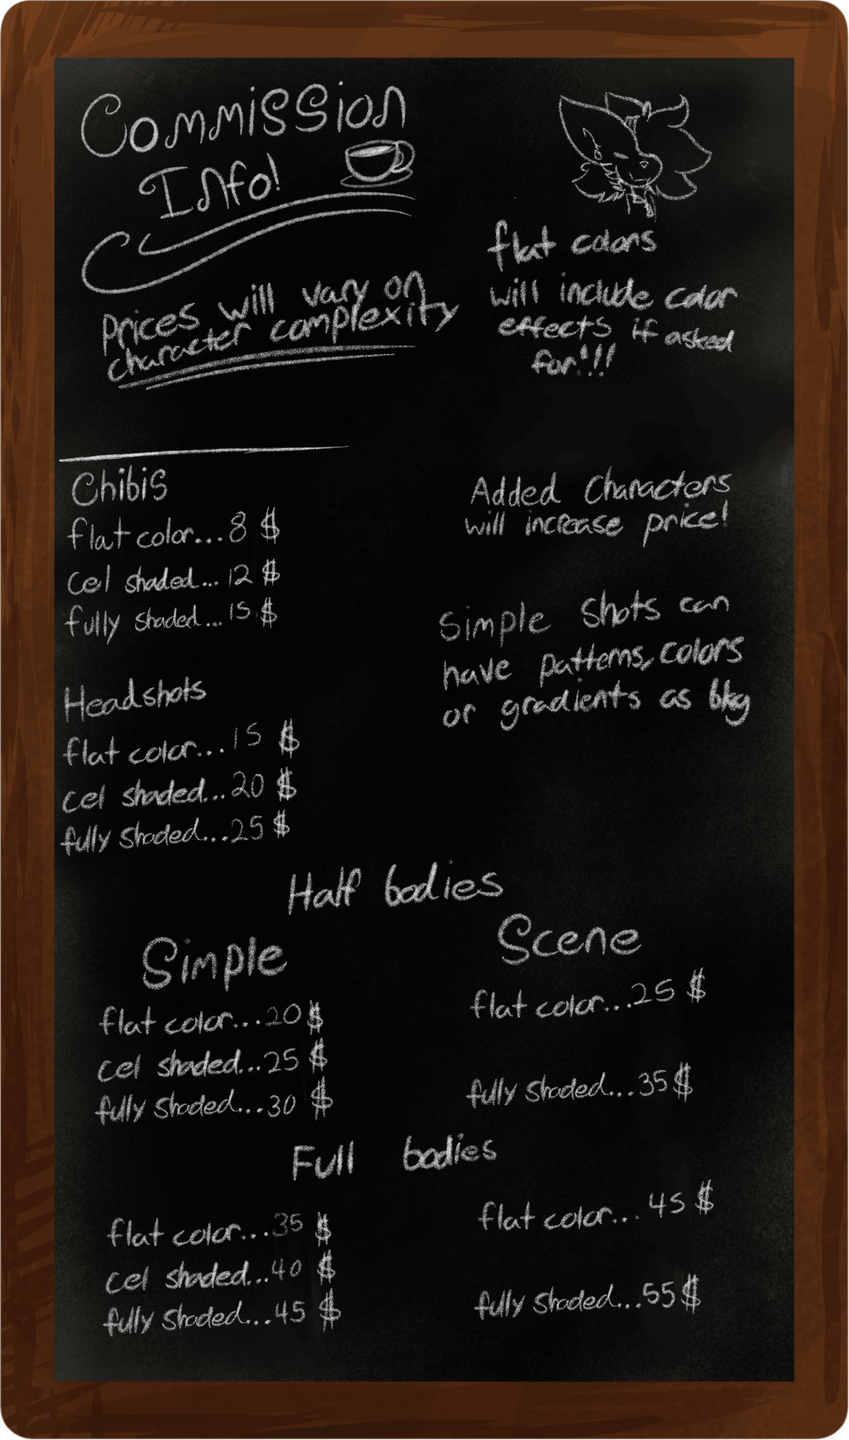 Commission
Info!
Prices will vary on
character complexity
flat colors
will include color
effects if asked
for!!!
Chibis
flat color...8 $
cel shaded...12 $
fully shaded...15 $
Added Characters
will increase price!
Simple Shots can
have patterns, colors
or gradients as bkg
Headshots
flat color...15 $
cel shaded...20 $
fully shaded...25 $
Half bodies
Simple
flat color...20 $
cel shaded...25 $
fully shaded...30 $
Scene
flat color...25 $
fully shaded...35 $
Full bodies
flat color...35 $
cel shaded...40 $
fully shaded...45 $
flat color...45 $
fully shaded...55 $